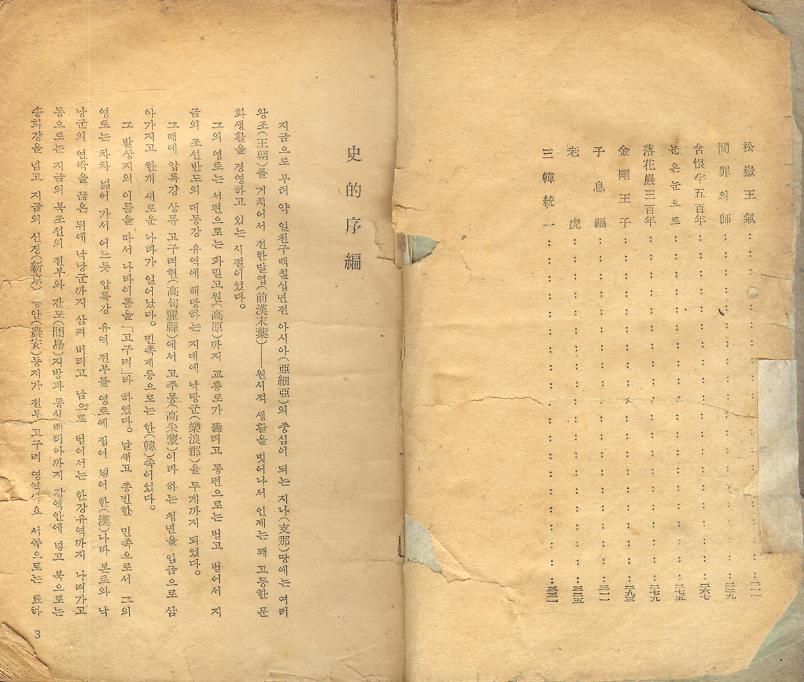 松嶽王氣
問罪의師
含恨千五百年
눈은눈으로
落花巖三百年
金剛王子
子息福
老虎
三韓統一
史的序編
지금으로 부터 약 일천구백칠십년전 아시아(亞細亞)의 중심이 되는 지나(支那)땅에는 여러
왕조(王朝)를 거치어서 전한말엽(前漢末葉)——원시적 생활을 벗어나서 인제는 꽤 고등한 문
화생활을 경영하고 있는 시절이었다.
그의 영토는 서편으로는 파밀고원(高原)까지 교통로가 뚫리고 동편으로는 벌고 벌어서 지
금의 조선반도의 대동강 유역에 해당하는 지대에 낙랑군(樂浪郡)을 두게까지 되였다.
그때에 압록강 상류 고구려현(高句麗縣)에서 고주몽(高朱蒙)이라 하는 청년을 임금으로 삼
아가지고 한개 새로운 나라가 일어났다. 민족계통으로는 한(韓)족이었다.
그 발상지의 이름을 따서 나라이름을 「고구려」라 하였다. 날새고 총민한 민족으로서 그의
영토는 차차 넓어 가서 어느듯 압록강 유역 전부를 영토에 집어 넣어 한(漢)나라 본토와 낙
낭군의 연락을 끊은 뒤에 낙낭군까지 삼켜 버리고 남으로 벌어서는 한강유역까지 나려가고
동으로는 지금의 북조선의 전부와 간도(間島)지방과 동시베리아까지 강역안에 넣고 북으로는
송화강을 넘고 지금의 신경(新京) 농안(農安)등지가 전부 고구려 영역이요 서쪽으로는 료하
3